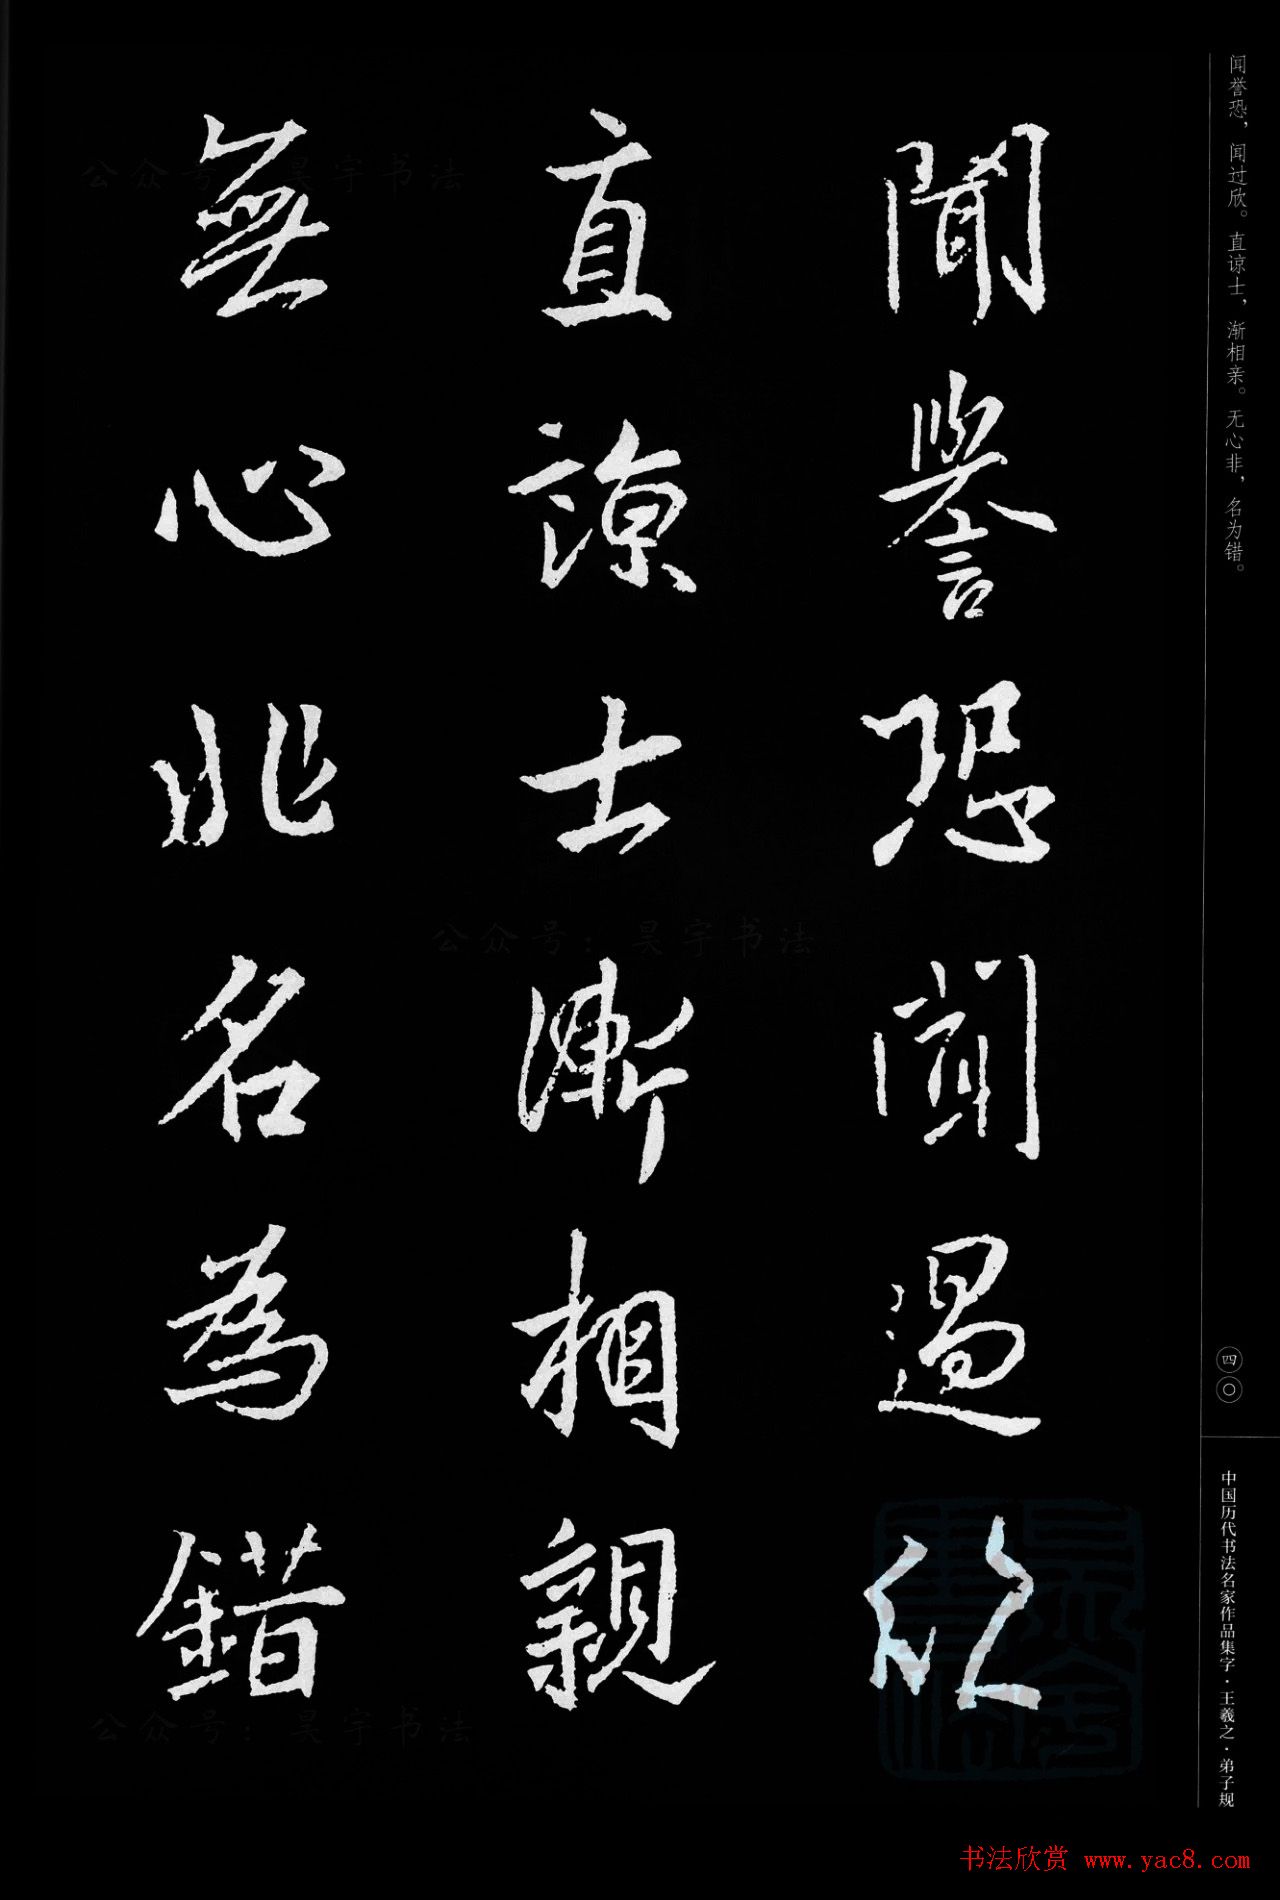 聞譽恐聞過欣
直諒士漸相親
無心非名為錯
闻誉恐，闻过欣。直谅士，渐相亲。无心非，名为错。
四〇
中国历代书法名家作品集字·王羲之·弟子规
公众号：昊宇书法
公众号：昊宇书法
公众号：昊宇书法
书法欣赏 www.yac8.com